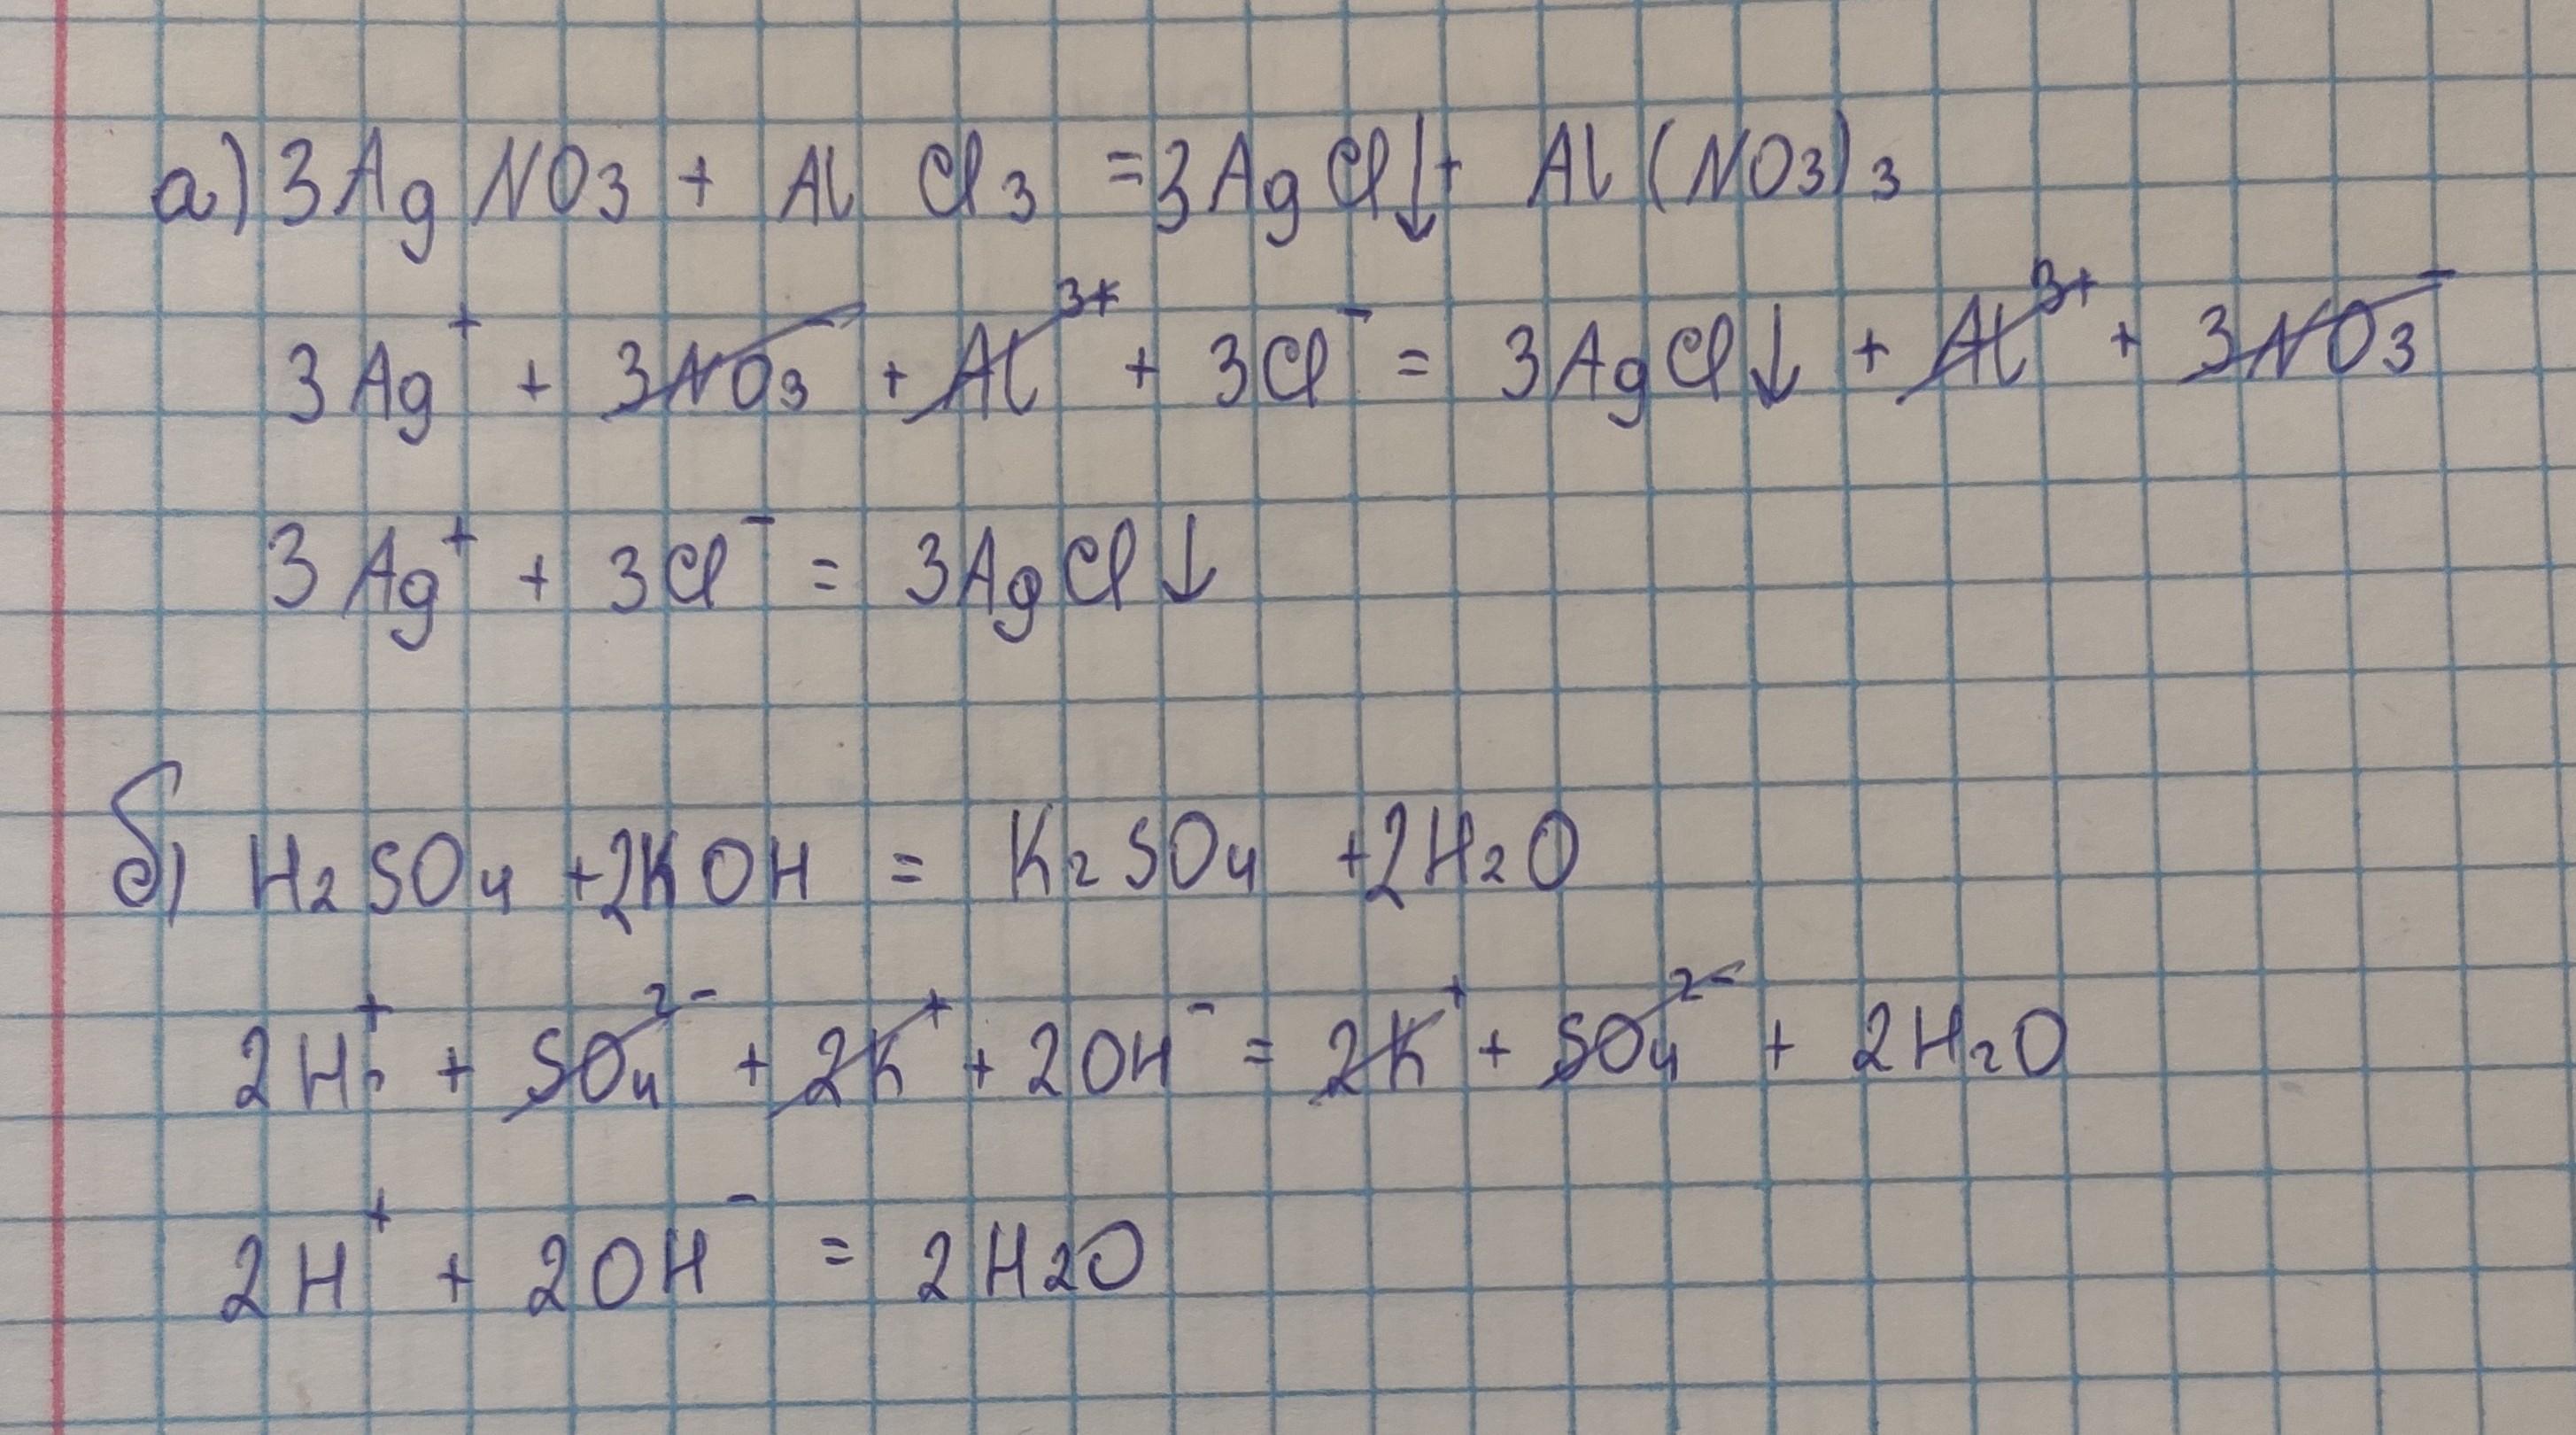 а) 3AgNO3 + AlCl3 = 3AgCl↓ + Al(NO3)3
3Ag⁺ + 3NO3⁻ + Al³⁺ + 3Cl⁻ = 3AgCl↓ + Al³⁺ + 3NO3⁻
3Ag⁺ + 3Cl⁻ = 3AgCl↓
б) H2SO4 + 2KOH = K2SO4 + 2H2O
2H2⁺ + SO4²⁻ + 2K⁺ + 2OH⁻ = 2K⁺ + SO4²⁻ + 2H2O
2H⁺ + 2OH⁻ = 2H2O